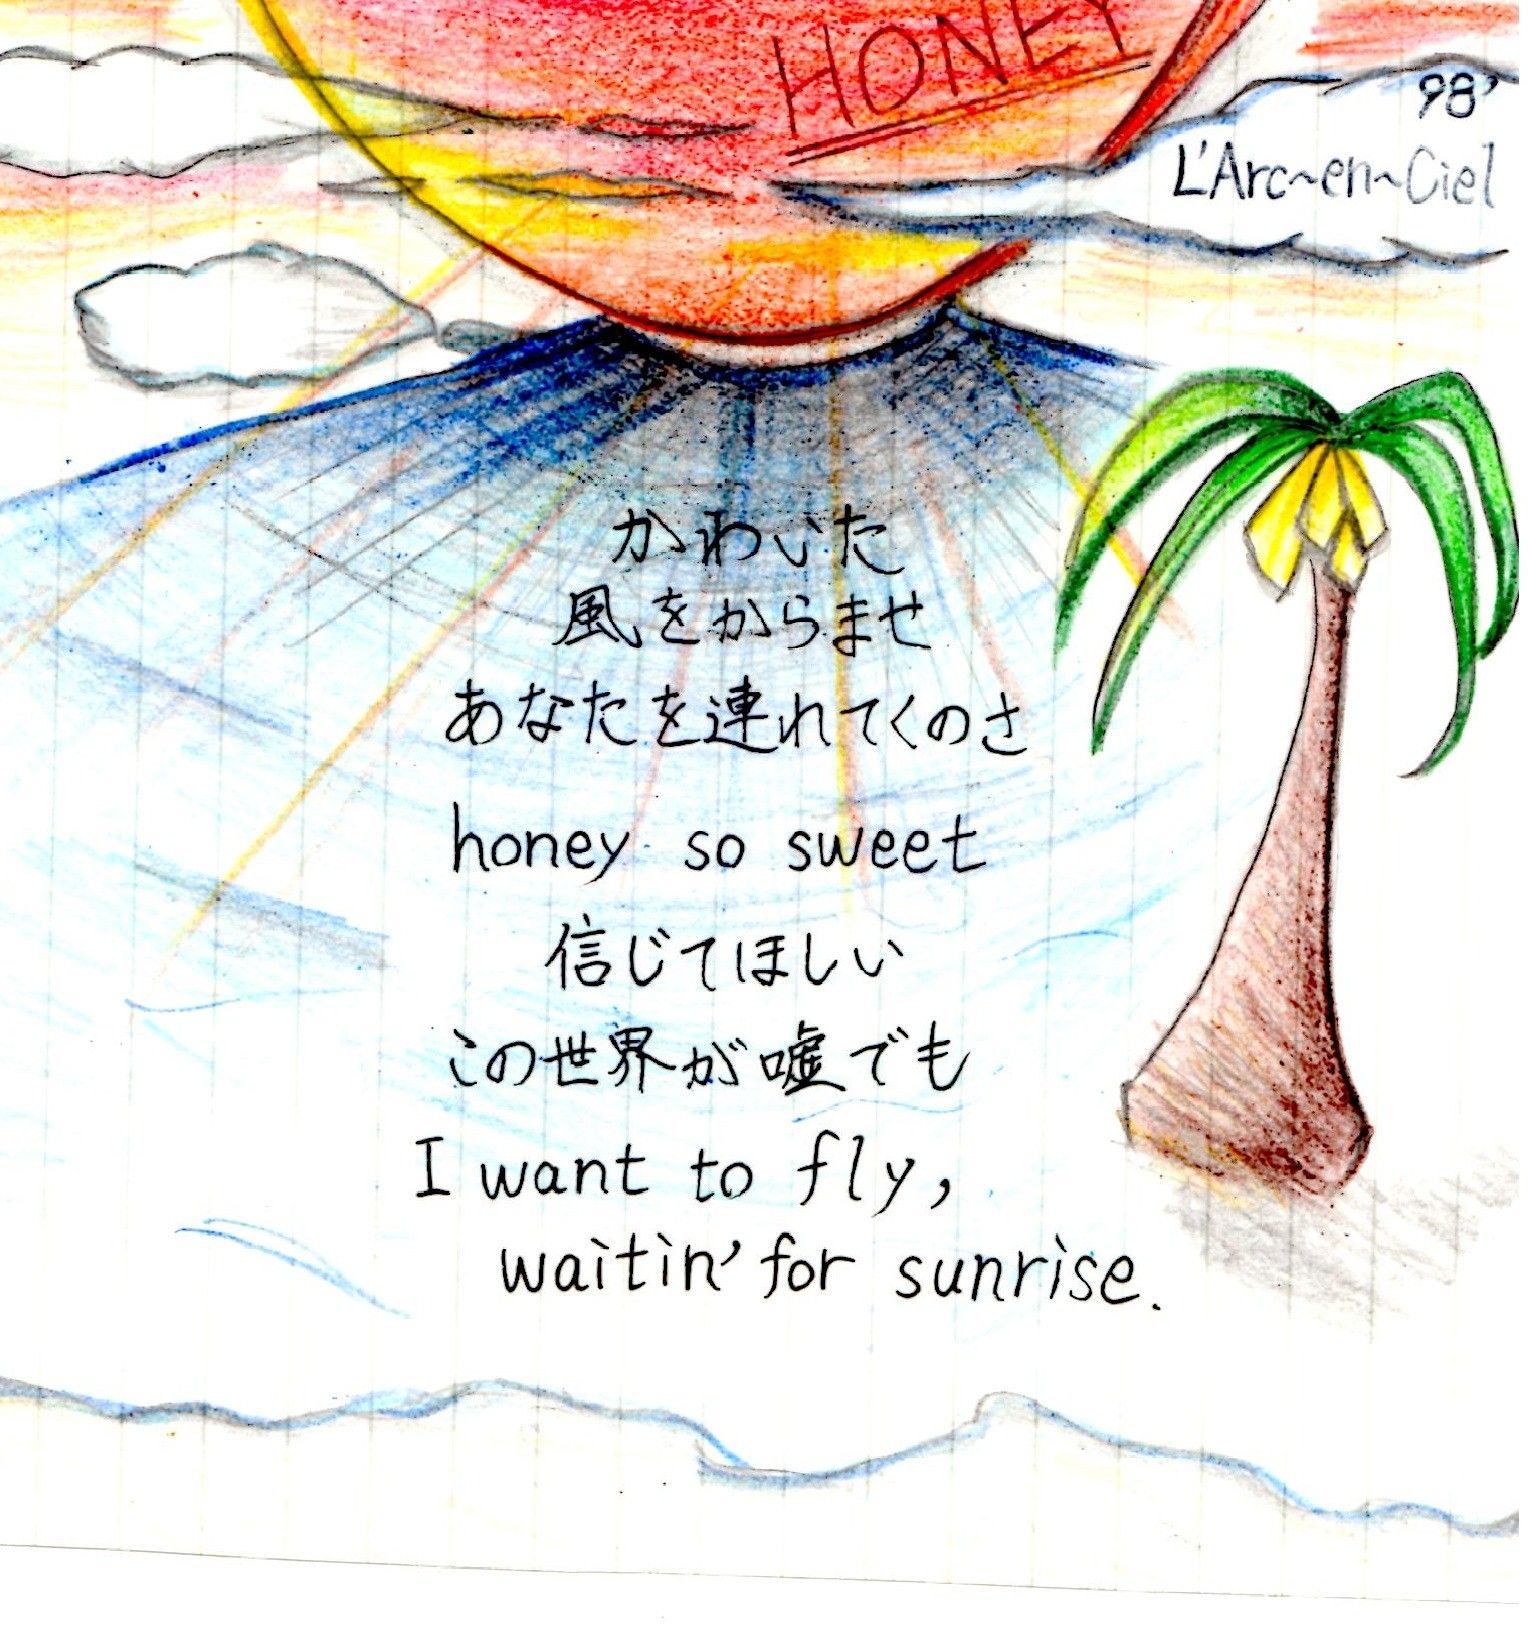 HONEY
98'
L'Arc~en~Ciel
かわいた
風をからませ
あなたを連れてくのさ
honey so sweet
信じてほしい
この世界が嘘でも
I want to fly,
waitin' for sunrise.